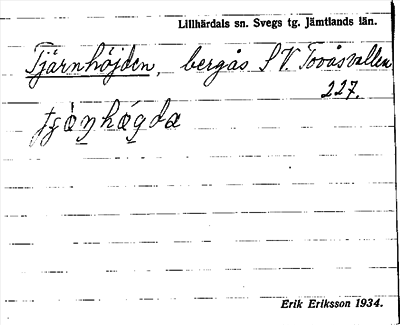 Lillhärdals sn. Svegs tg. Jämtlands län.
Tjärnhöjden, bergås SV. Tovåsvallen
227.
Erik Eriksson 1934.